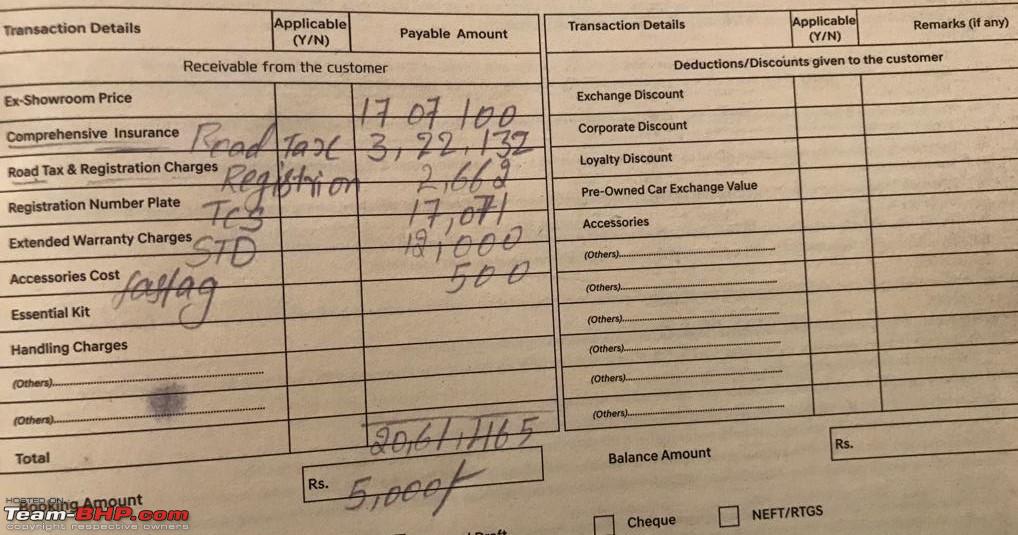 Transaction Details Applicable (Y/N) Payable Amount
Receivable from the customer
Ex-Showroom Price 17 07 100
Comprehensive Insurance Road Tax 3,22,132
Road Tax & Registration Charges Registrion 2,662
Registration Number Plate TCS 17,071
Extended Warranty Charges STD 12,000
Accessories Cost fastag 500
Essential Kit
Handling Charges
(Others)
(Others)
Total 20,61,465
Booking Amount Rs. 5,000/-
Transaction Details Applicable (Y/N) Remarks (if any)
Deductions/Discounts given to the customer
Exchange Discount
Corporate Discount
Loyalty Discount
Pre-Owned Car Exchange Value
Accessories
(Others)
(Others)
(Others)
(Others)
(Others)
(Others)
Balance Amount Rs.
Cheque NEFT/RTGS
HOSTED ON
Team-BHP.com
copyright respective owners